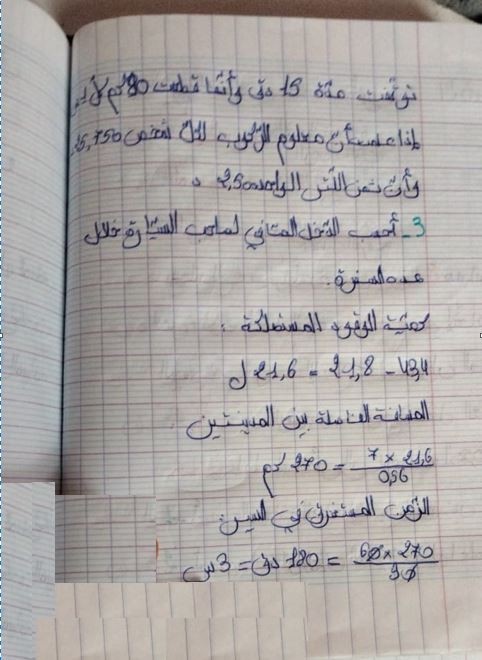 توقفت مدة 15 دق وأنها قطعت 90 كم
إذا علمت أن معلوم الركوب لكل شخص 15,750
وأن ثمن اللتر الواحد 2,500 د
3 - أحسب الدخل الصافي لصاحب السيارة خلال
هذه السفرة.
كمية الوقود المستهلكة :
43,4 - 21,8 = 21,6 ل
المسافة الفاصلة بين المدينتين
7 × 21,6 / 0,56 = 270 كم
الزمن المستغرق في السير
60 × 270 / 90 = 180 دق = 3 س